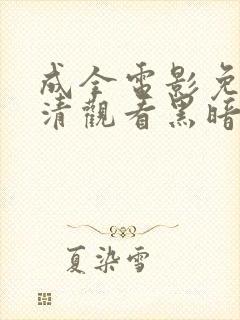 成全電影免
清觀看黑暗
夏染雪